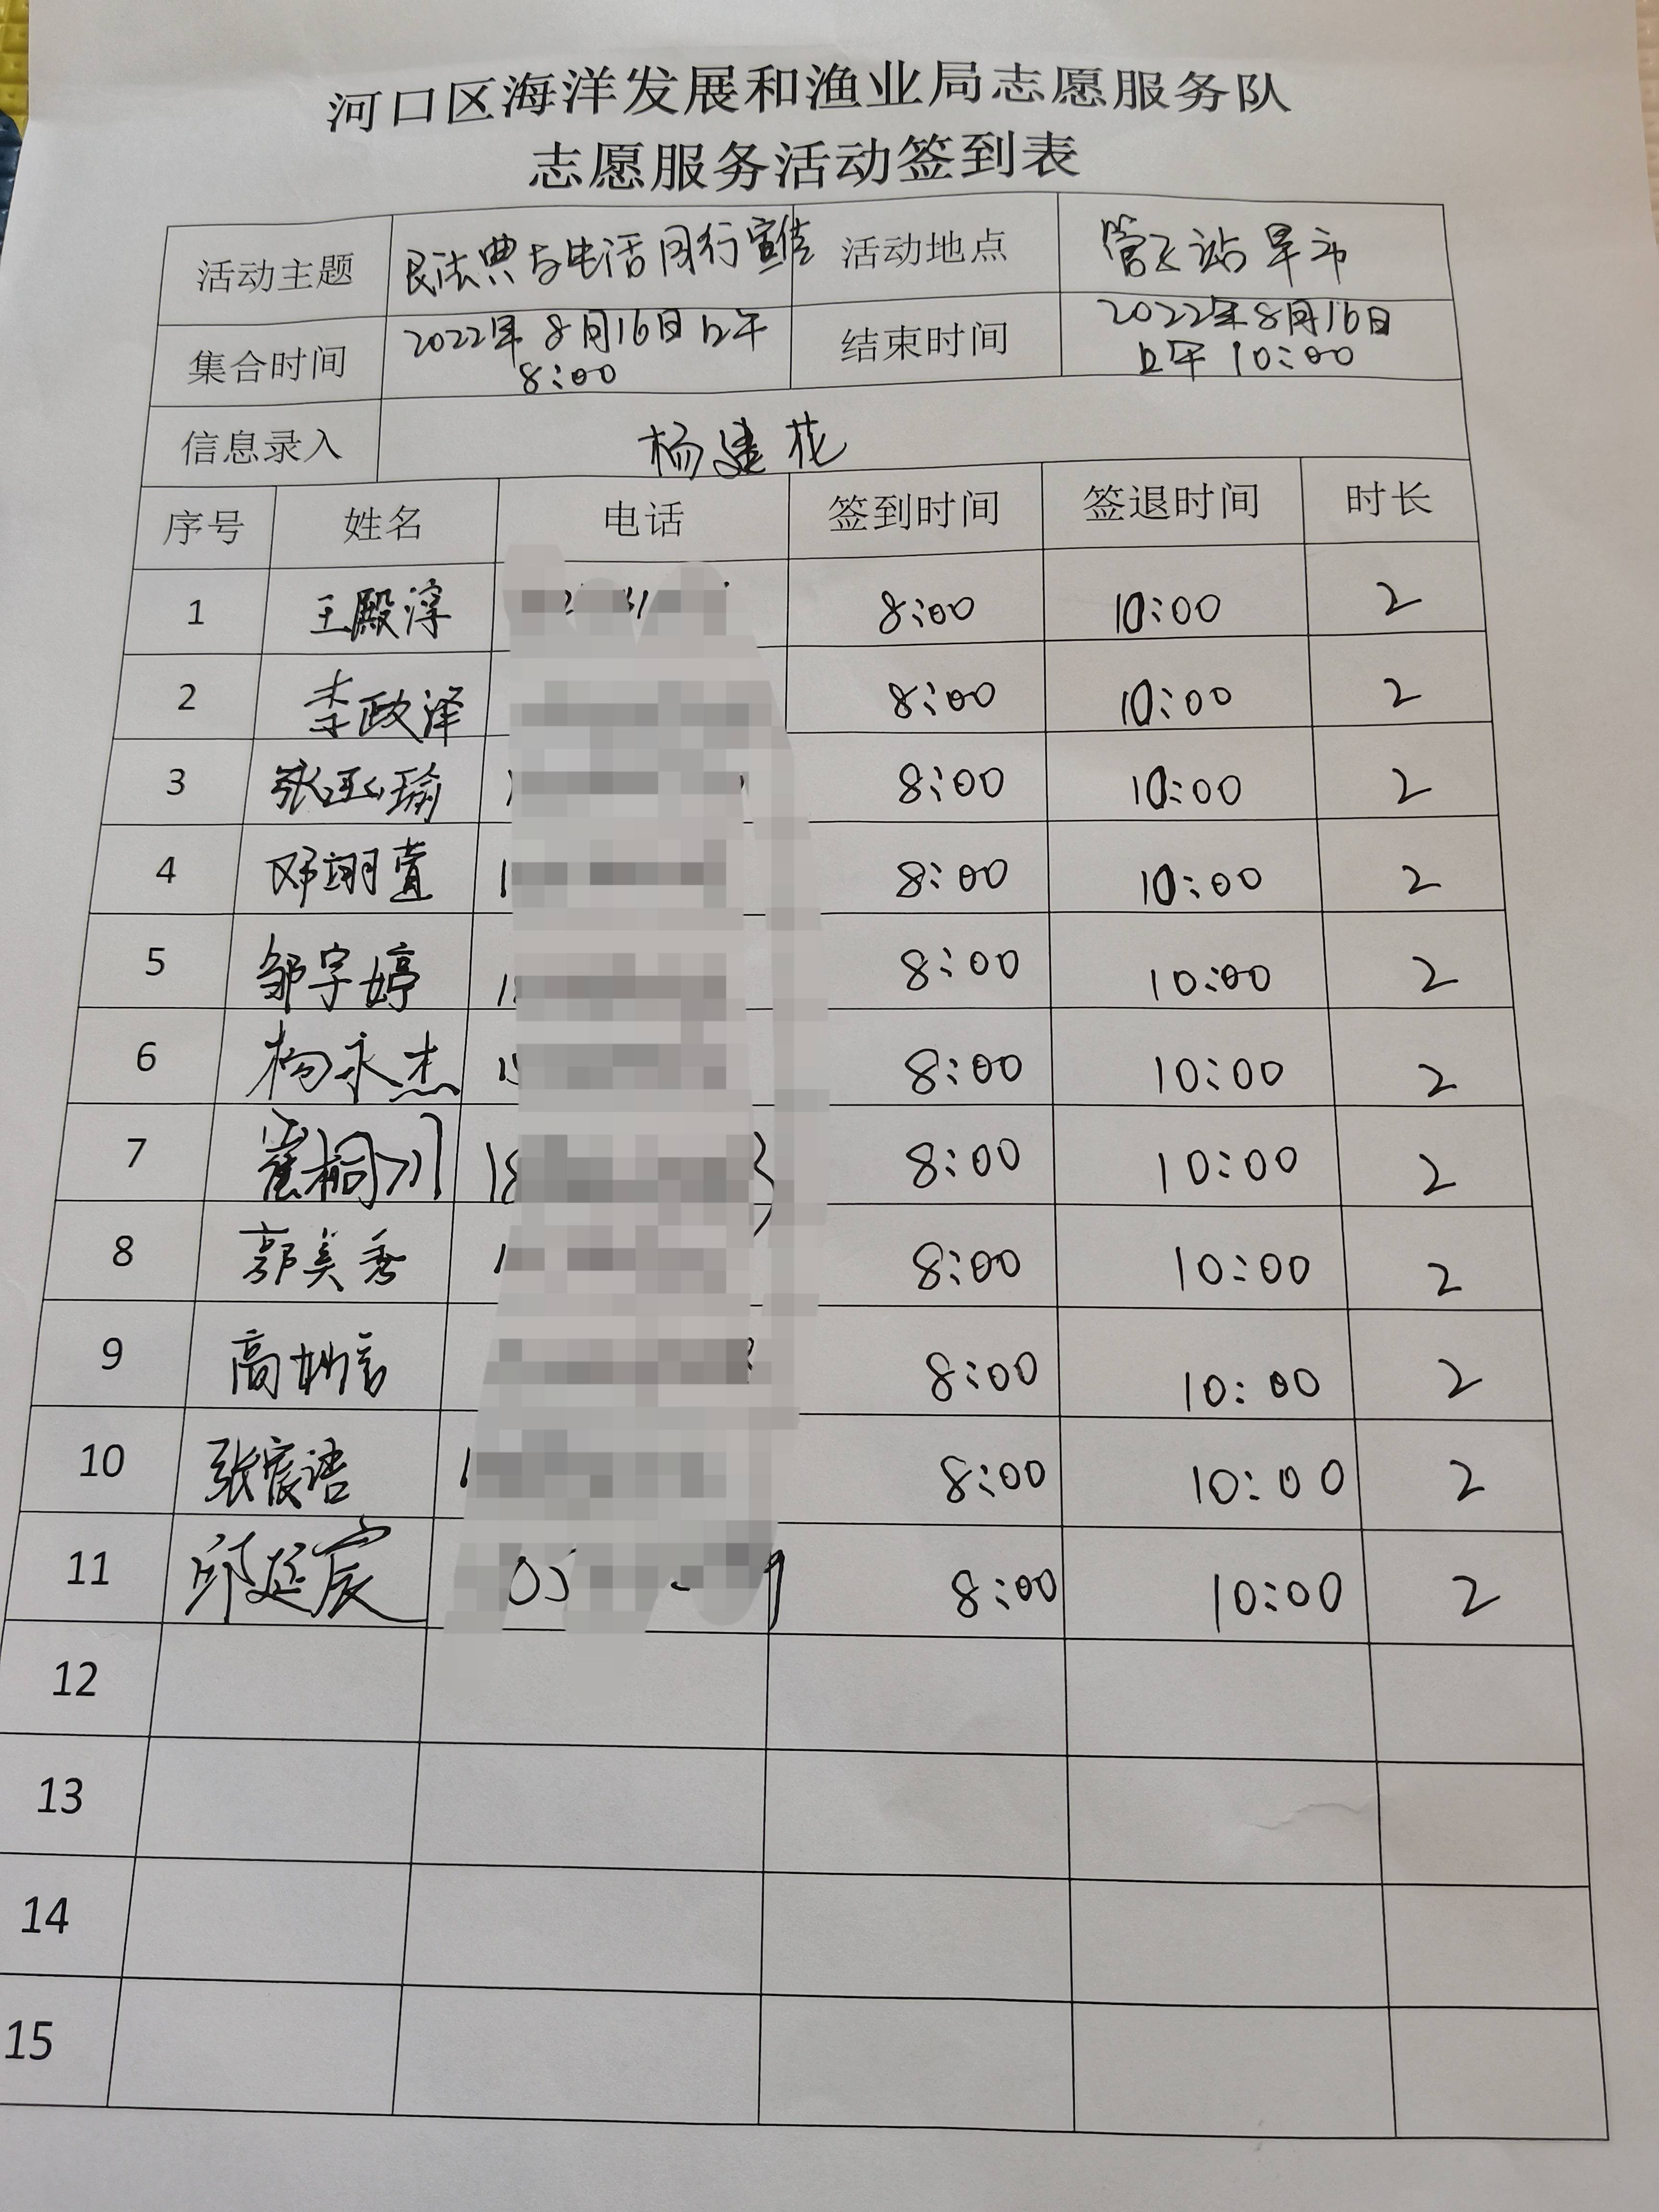 河口区海洋发展和渔业局志愿服务队
志愿服务活动签到表
活动主题 民法典与生活同行宣传 活动地点 管飞站早市
集合时间 2022年8月16日上午 8:00 结束时间 2022年8月16日 上午10:00
信息录入 杨建花
序号 姓名 电话 签到时间 签退时间 时长
1 王殿淳 8:00 10:00 2
2 李政泽 8:00 10:00 2
3 张瑜 8:00 10:00 2
4 邓翊萱 8:00 10:00 2
5 邹宇婷 8:00 10:00 2
6 杨永杰 8:00 10:00 2
7 崔桐川 8:00 10:00 2
8 郭美秀 8:00 10:00 2
9 高 8:00 10:00 2
10 张宸语 8:00 10:00 2
11 邱延宸 8:00 10:00 2
12
13
14
15